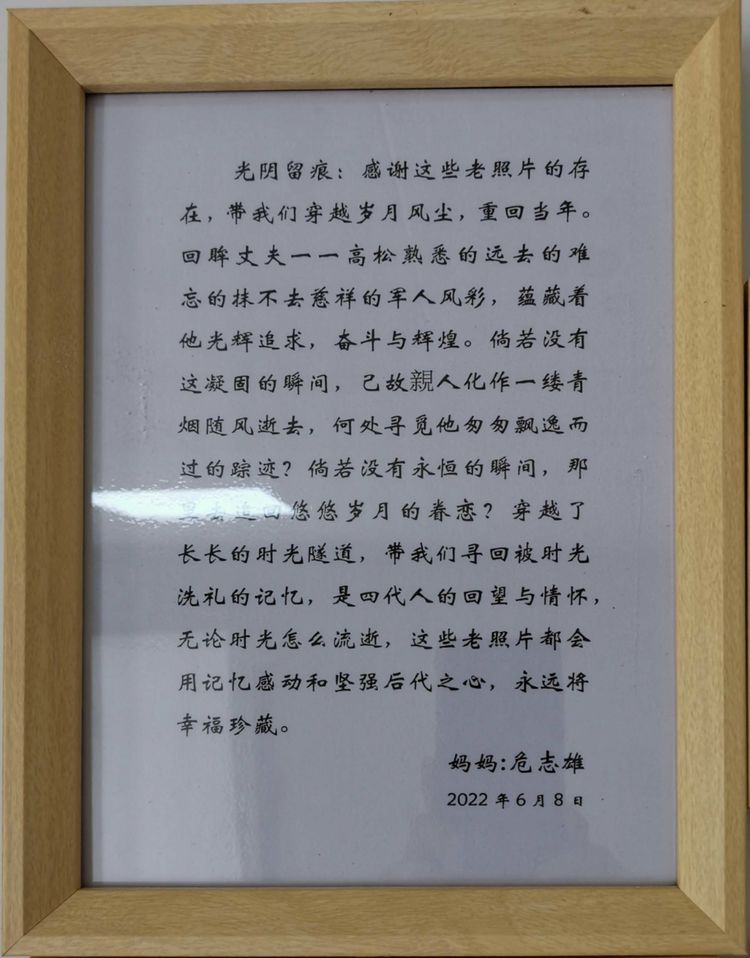 光阴留痕：感谢这些老照片的存
在，带我们穿越岁月风尘，重回当年。
回眸丈夫一一高松熟悉的远去的难
忘的抹不去慈祥的军人风彩，蕴藏着
他光辉追求，奋斗与辉煌。倘若没有
这凝固的瞬间，已故親人化作一缕青
烟随风逝去，何处寻觅他匆匆飘逸而
过的踪迹？倘若没有永恒的瞬间，那
里去追回悠悠岁月的眷恋？穿越了
长长的时光隧道，带我们寻回被时光
洗礼的记忆，是四代人的回望与情怀，
无论时光怎么流逝，这些老照片都会
用记忆感动和坚强后代之心，永远将
幸福珍藏。
妈妈：危志雄
2022 年 6 月 8 日